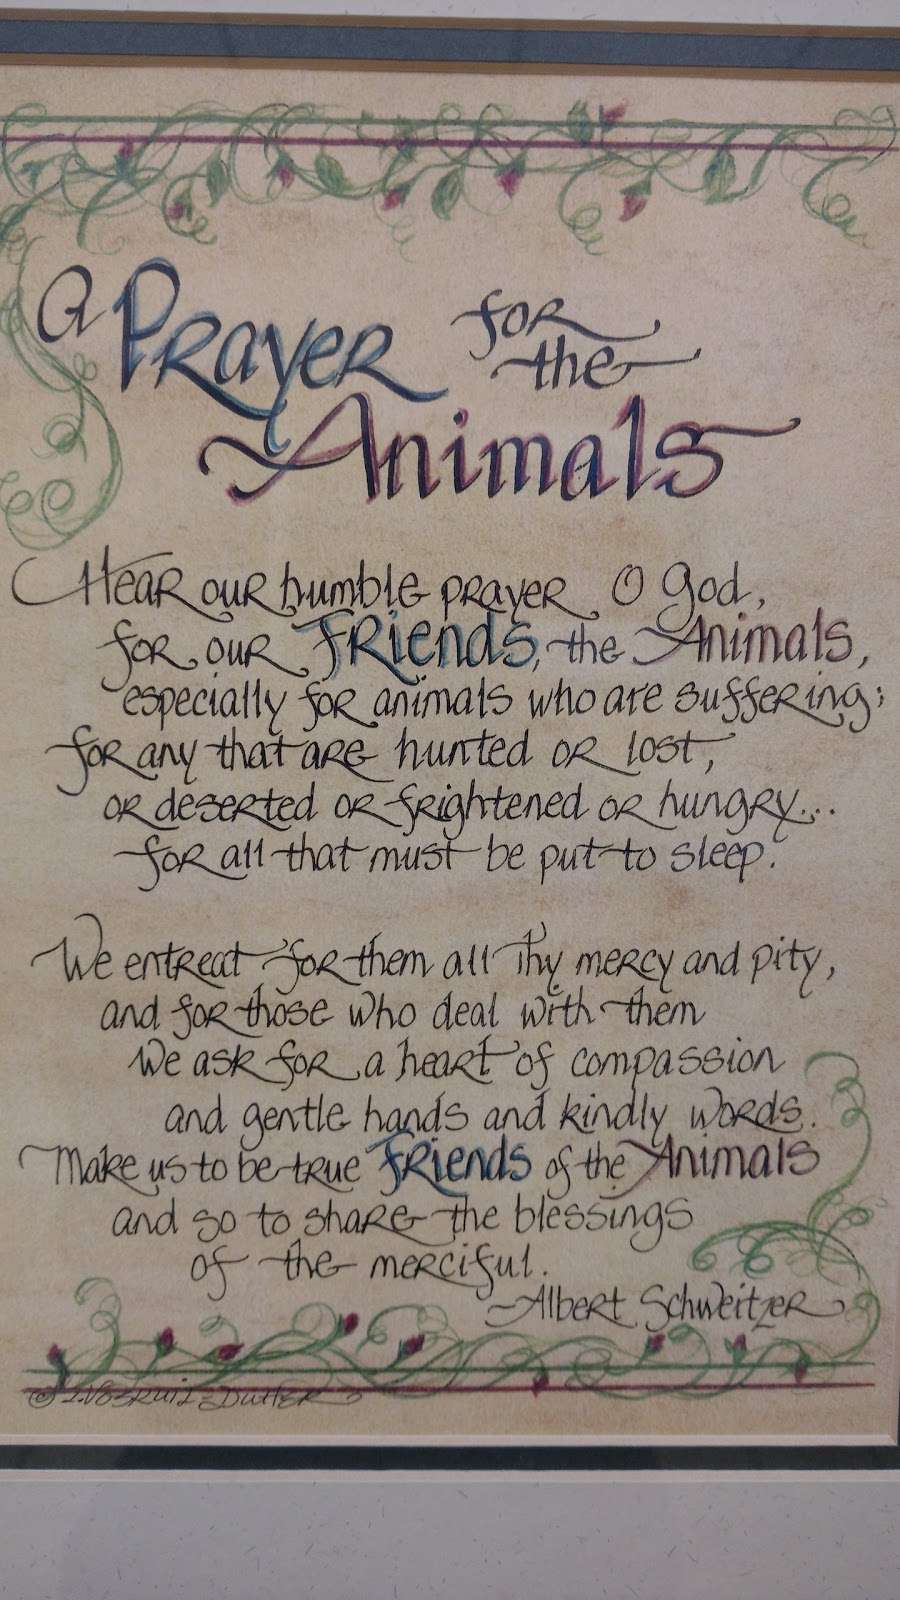 A Prayer for the Animals
Hear our humble prayer, O God,
for our Friends, the Animals,
especially for animals who are suffering;
for any that are hunted or lost,
or deserted or frightened or hungry...
for all that must be put to sleep.
We entreat for them all Thy mercy and pity,
and for those who deal with them
we ask for a heart of compassion
and gentle hands and kindly words.
Make us to be true Friends of the Animals
and so to share the blessings
of the merciful.
~Albert Schweitzer
©